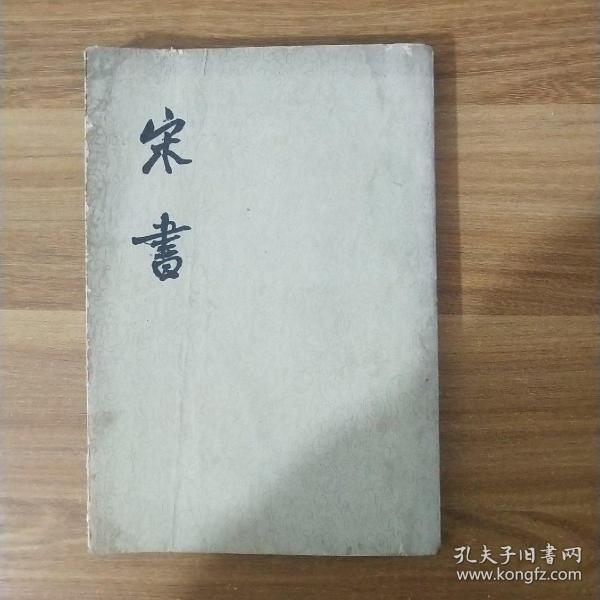 宋書
孔夫子旧書网
www.kongfz.com